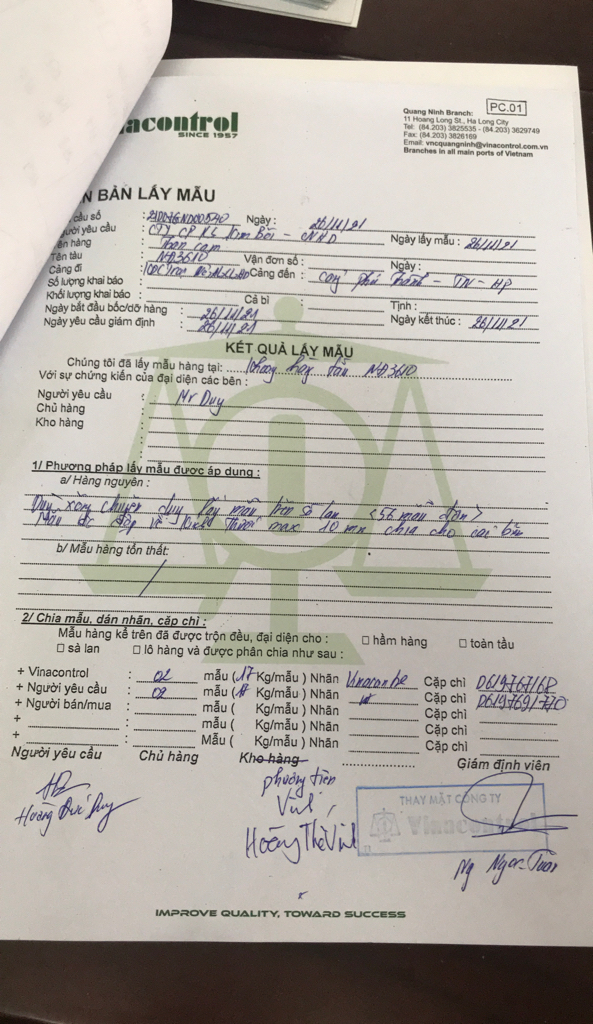 nacontrol
SINCE 1957
PC.01
Quang Ninh Branch:
11 Hoang Long St., Ha Long City
Tel: (84.203) 3825535 - (84.203) 3629749
Fax: (84.203) 3826169
Email: vncquangninh@vinacontrol.com.vn
Branches in all main ports of Vietnam
N BẢN LẤY MẪU
cầu số : Ngày : 26/11/21
gười yêu cầu : CTy CP Ngày lấy mẫu : 26/11/21
ên hàng : Than cám
Tên tàu : NĐ3610 Vận đơn số : Ngày :
Cảng đi : Cảng đến :
Số lượng khai báo :
Khối lượng khai báo : Cả bì : Tịnh :
Ngày bắt đầu bốc/dỡ hàng : 26/11/21 Ngày kết thúc : 26/11/21
Ngày yêu cầu giám định : 26/11/21
KẾT QUẢ LẤY MẪU
Chúng tôi đã lấy mẫu hàng tại: khoang hàng tàu NĐ3610
Với sự chứng kiến của đại diện các bên :
Người yêu cầu : Mr Duy
Chủ hàng :
Kho hàng :
1/ Phương pháp lấy mẫu được áp dụng :
a/ Hàng nguyên :
lấy mẫu trên sà lan <56 mẫu đơn>
Mẫu đc đập về kích thước max 10 mm chia cho các bên
b/ Mẫu hàng tổn thất:
/
2/ Chia mẫu, dán nhãn, cặp chì :
Mẫu hàng kể trên đã được trộn đều, đại diện cho : □ hầm hàng □ toàn tầu
□ sà lan □ lô hàng và được phân chia như sau :
+ Vinacontrol : 02 mẫu ( Kg/mẫu ) Nhãn Cặp chì D619767/68
+ Người yêu cầu : 02 mẫu ( Kg/mẫu ) Nhãn Cặp chì D619769/770
+ Người bán/mua : mẫu ( Kg/mẫu ) Nhãn Cặp chì
+ : mẫu ( Kg/mẫu ) Nhãn Cặp chì
+ : Mẫu ( Kg/mẫu ) Nhãn Cặp chì
Người yêu cầu Chủ hàng Kho hàng Giám định viên
phương tiện
Hoàng Đức Duy
Vinh
Hoàng Thế Vinh
THAY MẶT CÔNG TY
Vinacontrol
Ng Ngọc Tuân
IMPROVE QUALITY, TOWARD SUCCESS